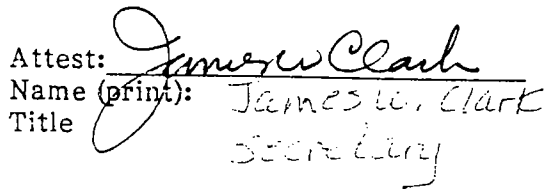 Attest: James W Clark
Name (print): James W. Clark
Title Secretary